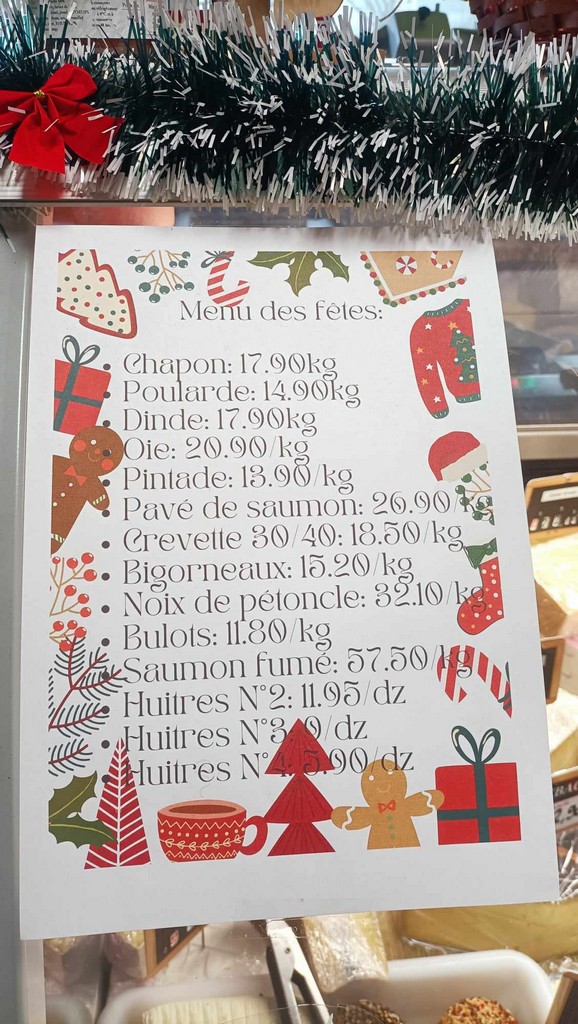 Menu des fêtes:
• Chapon: 17.90kg
• Poularde: 14.90kg
• Dinde: 17.90kg
• Oie: 20.90/kg
• Pintade: 13.90/kg
• Pavé de saumon: 26.90/kg
• Crevette 30/40: 18.50/kg
• Bigorneaux: 15.20/kg
• Noix de pétoncle: 32.10/kg
• Bulots: 11.80/kg
• Saumon fumé: 57.50/kg
• Huitres N°2: 11.95/dz
• Huitres N°3: 9/dz
• Huitres N°4: 5.90/dz